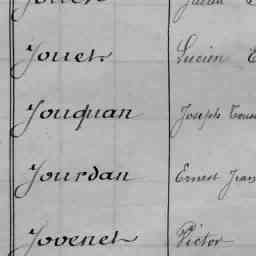 Jouet Lucien
Jouquan Joseph
Jourdan Ernest Jean
Jovenet Victor